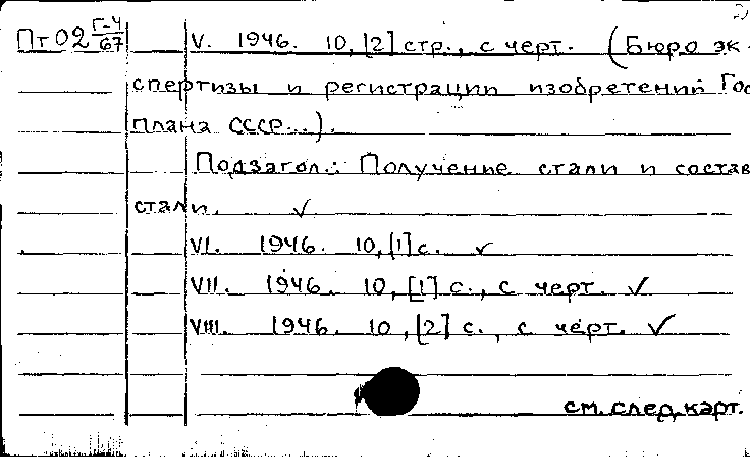 2)
Пт 02 Г-4/67 V. 1946. 10, [2] стр., с черт. (Бюро эк-
спертизы и регистрации изобретений Гос
плана СССР...).
Подзагол.: Получение стали и состав
стали. ✓
VI. 1946. 10, [1] с. ✓
VII. 1946. 10, [1] с., с черт. ✓
VIII. 1946. 10, [2] с., с черт. ✓
см. след. карт.